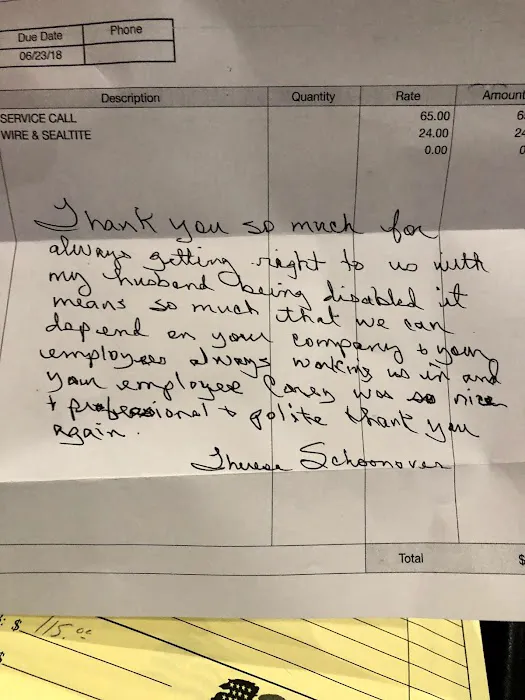 Due Date Phone
06/23/18
Description Quantity Rate Amount
SERVICE CALL 65.00 6
WIRE & SEALTITE 24.00 24
0.00 0
Thank you so much for
always getting right to us with
my husband being disabled it
means so much that we can
depend on your company & your
employees always working us in and
your employee Corey was so nice
+ professional + polite thank you
again.
Therese Schoonover
Total $
: $ 115.00
$